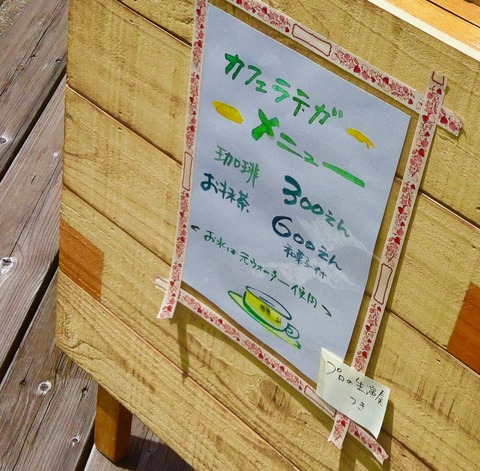 カフェラテガ
メニュー
珈琲 300えん
お抹茶 600えん
和菓子付
お水は元ウォーター使用
プロの生演奏
つき